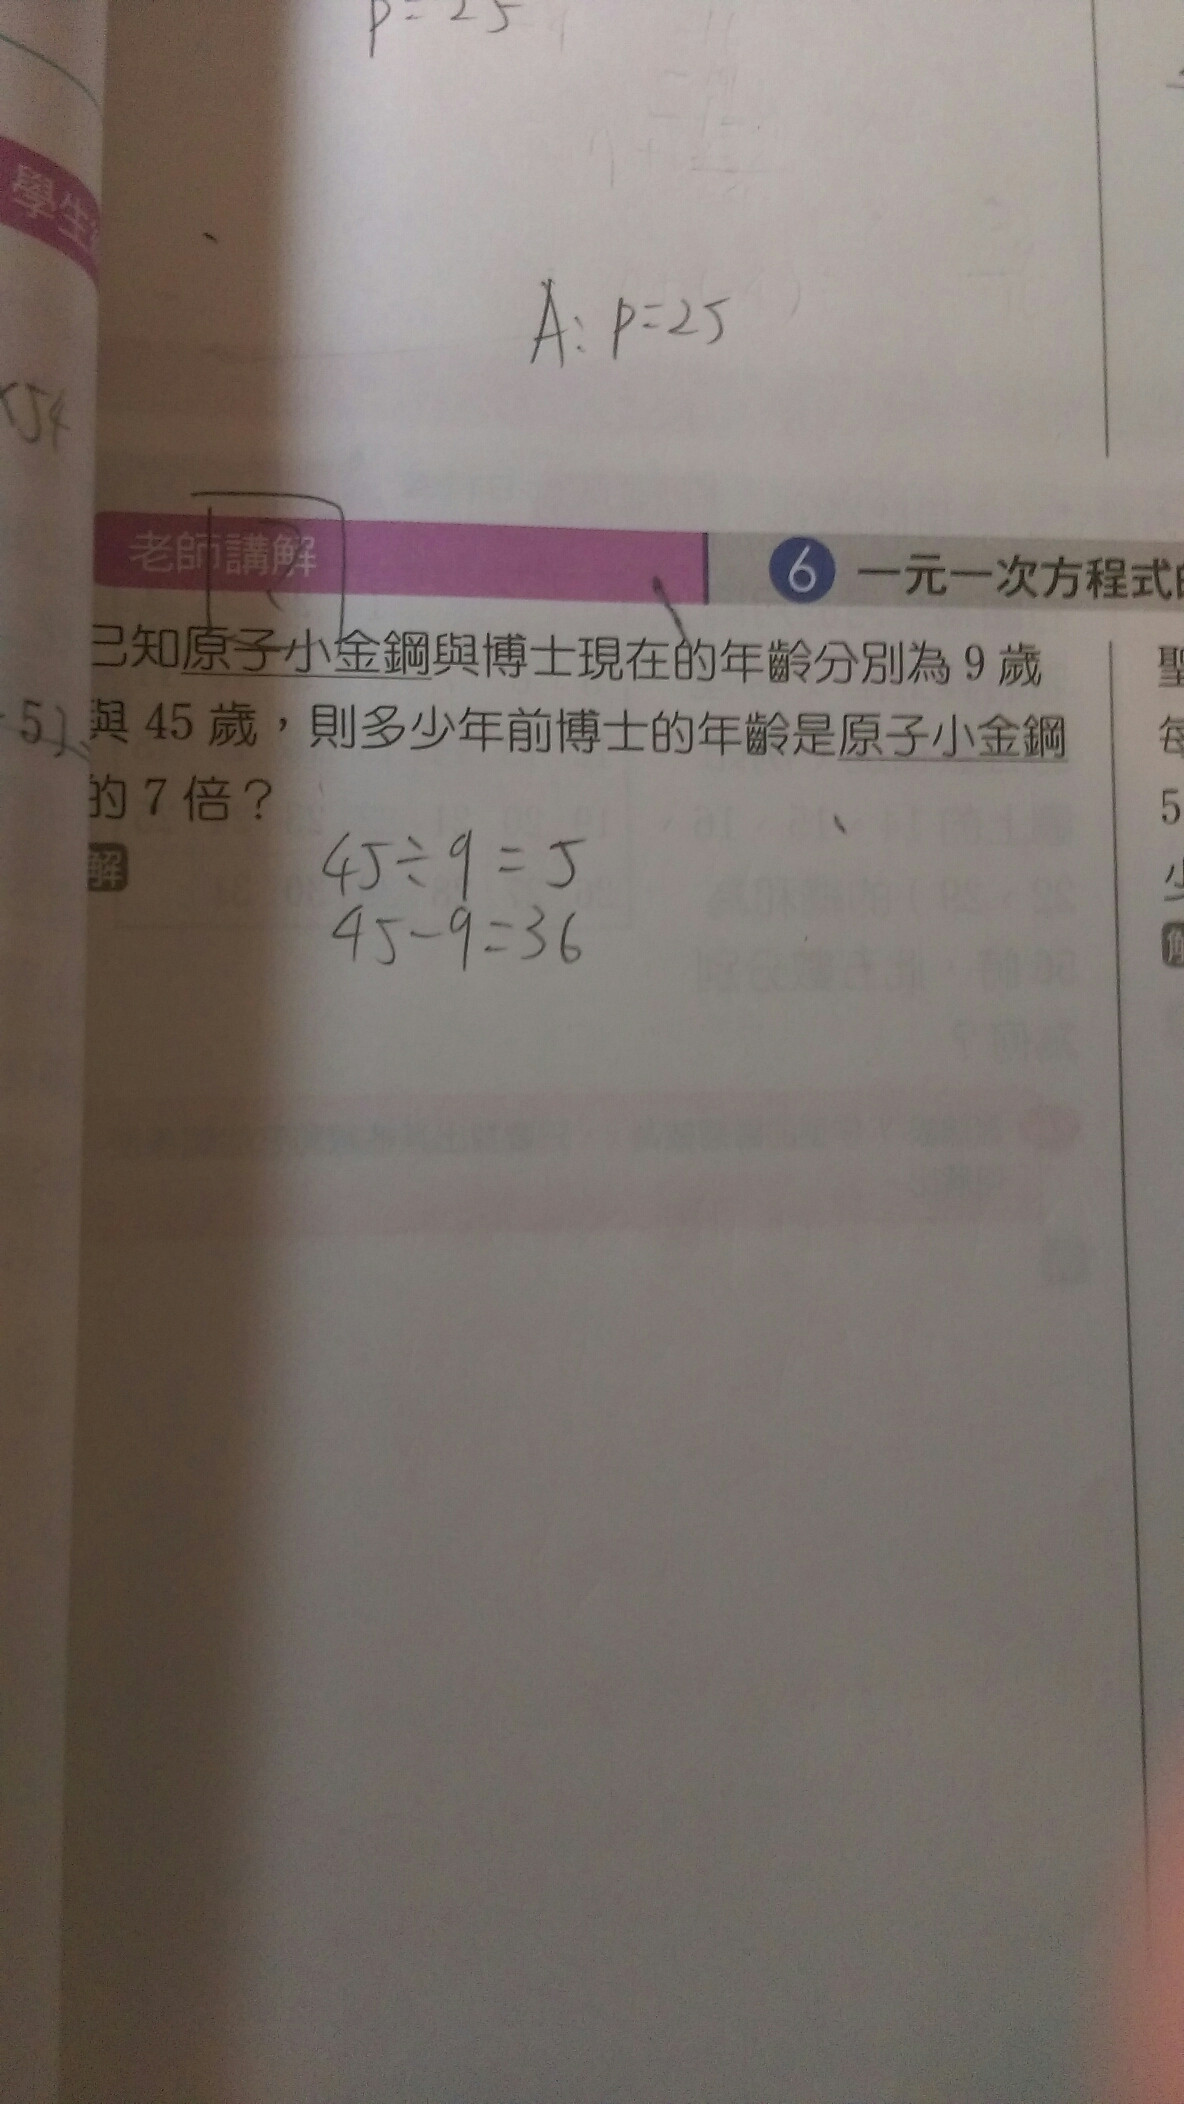 p=25
學生
A: p=25
×54
老師講解
6 一元一次方程式的
已知原子小金鋼與博士現在的年齡分別為 9 歲
與 45 歲，則多少年前博士的年齡是原子小金鋼
的 7 倍？
解
45÷9=5
45-9=36
聖
每
5
少
解